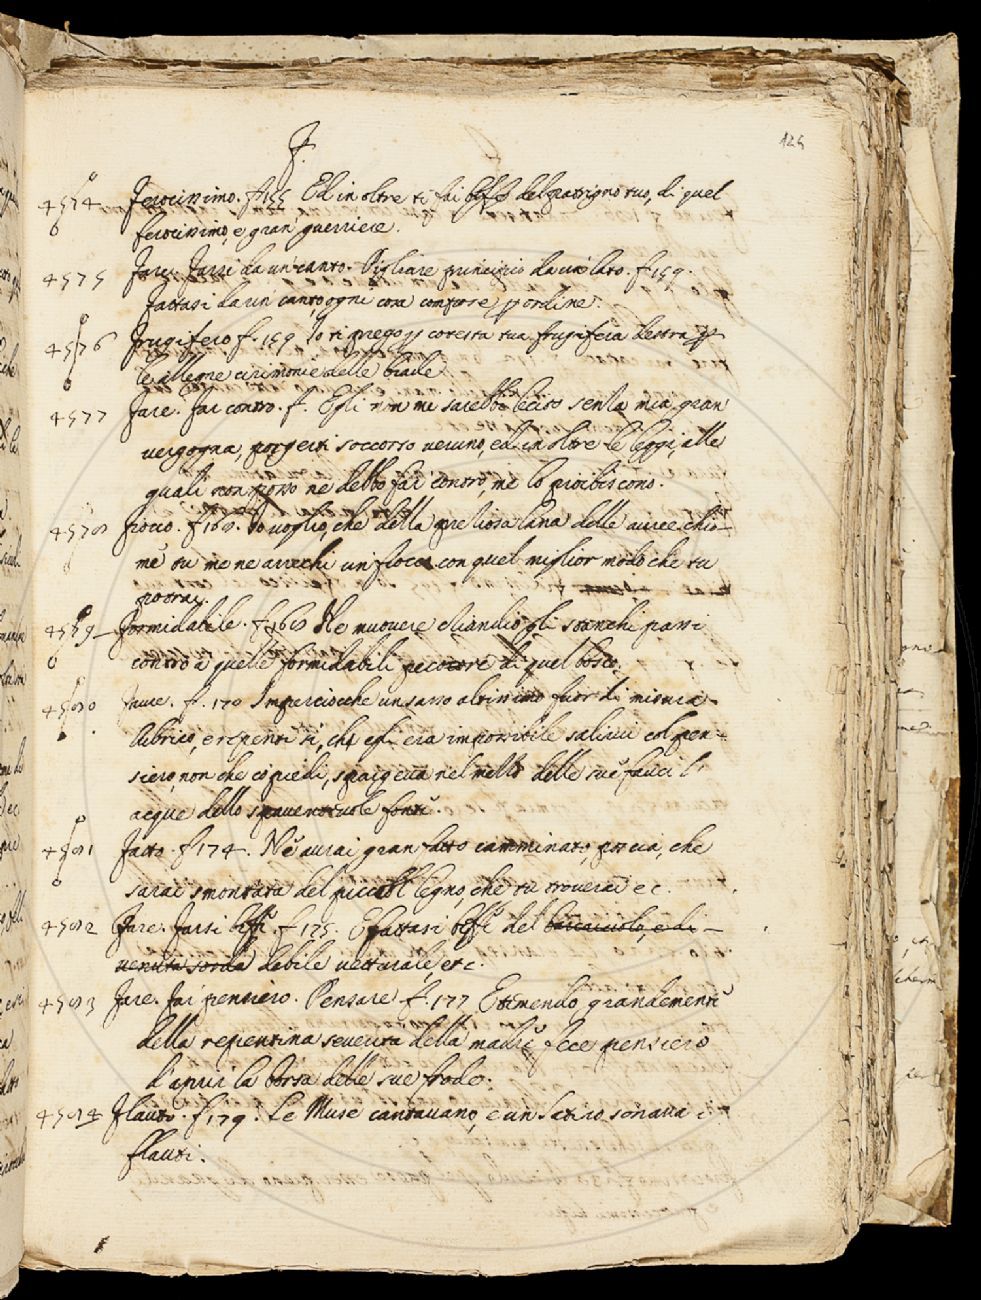 124
F.
4574 Ferocissimo. f. 155 Ed in oltre ti fai beffe del patrigno tuo, di quel
ferocissimo, e gran guerriere.
4575 Fare. Farsi da un canto. Pigliare principio da un lato. f. 159.
fattasi da un canto, ogni cosa compose p ordine.
4576 Frugifero f. 159 Io ti prego p cotesta tua frugifera destra p
le allegre cirimonie delle biade
4577 Fare. Far contro. f. Egli non mi sarebbe lecito senza mia gran
vergogna, porgerti soccorso veruno, ed in oltre le leggi, alle
quali non posso ne debbo far contro, me lo proibiscono.
4578 Fiocco. f. 168. Io voglio, che della preziosa lana delle auree chio-
me tu me ne arrechi un fiocco con quel miglior modo che tu
potrai.
4579 Formidabile. f. 168 Ne muovere eziandio gli stanchi passi
contro a quelle formidabili pecore di quel bosco.
4580 Fauce. f. 170 Impercioche un sasso altissimo fuor di misura
lubrico, e repente sì, che egli era impossibile salirvi col pen-
siero, non che co piedi, spargeva nel mezzo delle sue fauci l'
acque dello spaventevole fonte.
4581 Fatto. f. 174. Ne avrai gran fatto camminato, poscia, che
sarai smontata del piccol legno, che tu troverai etc.
4582 Fare. Farsi beffe f. 175. E fattasi beffe del barcaiuolo, e di-
venuta sorda debile vetturale, etc.
4583 Fare. Far pensiero. Pensare f. 177 E temendo grandemente
della repentina severita della madre fece pensiero
d'aprir la borsa delle sue frode.
4584 Flauto. f. 179. Le Muse cantavano, e un Satiro sonava i
flauti.